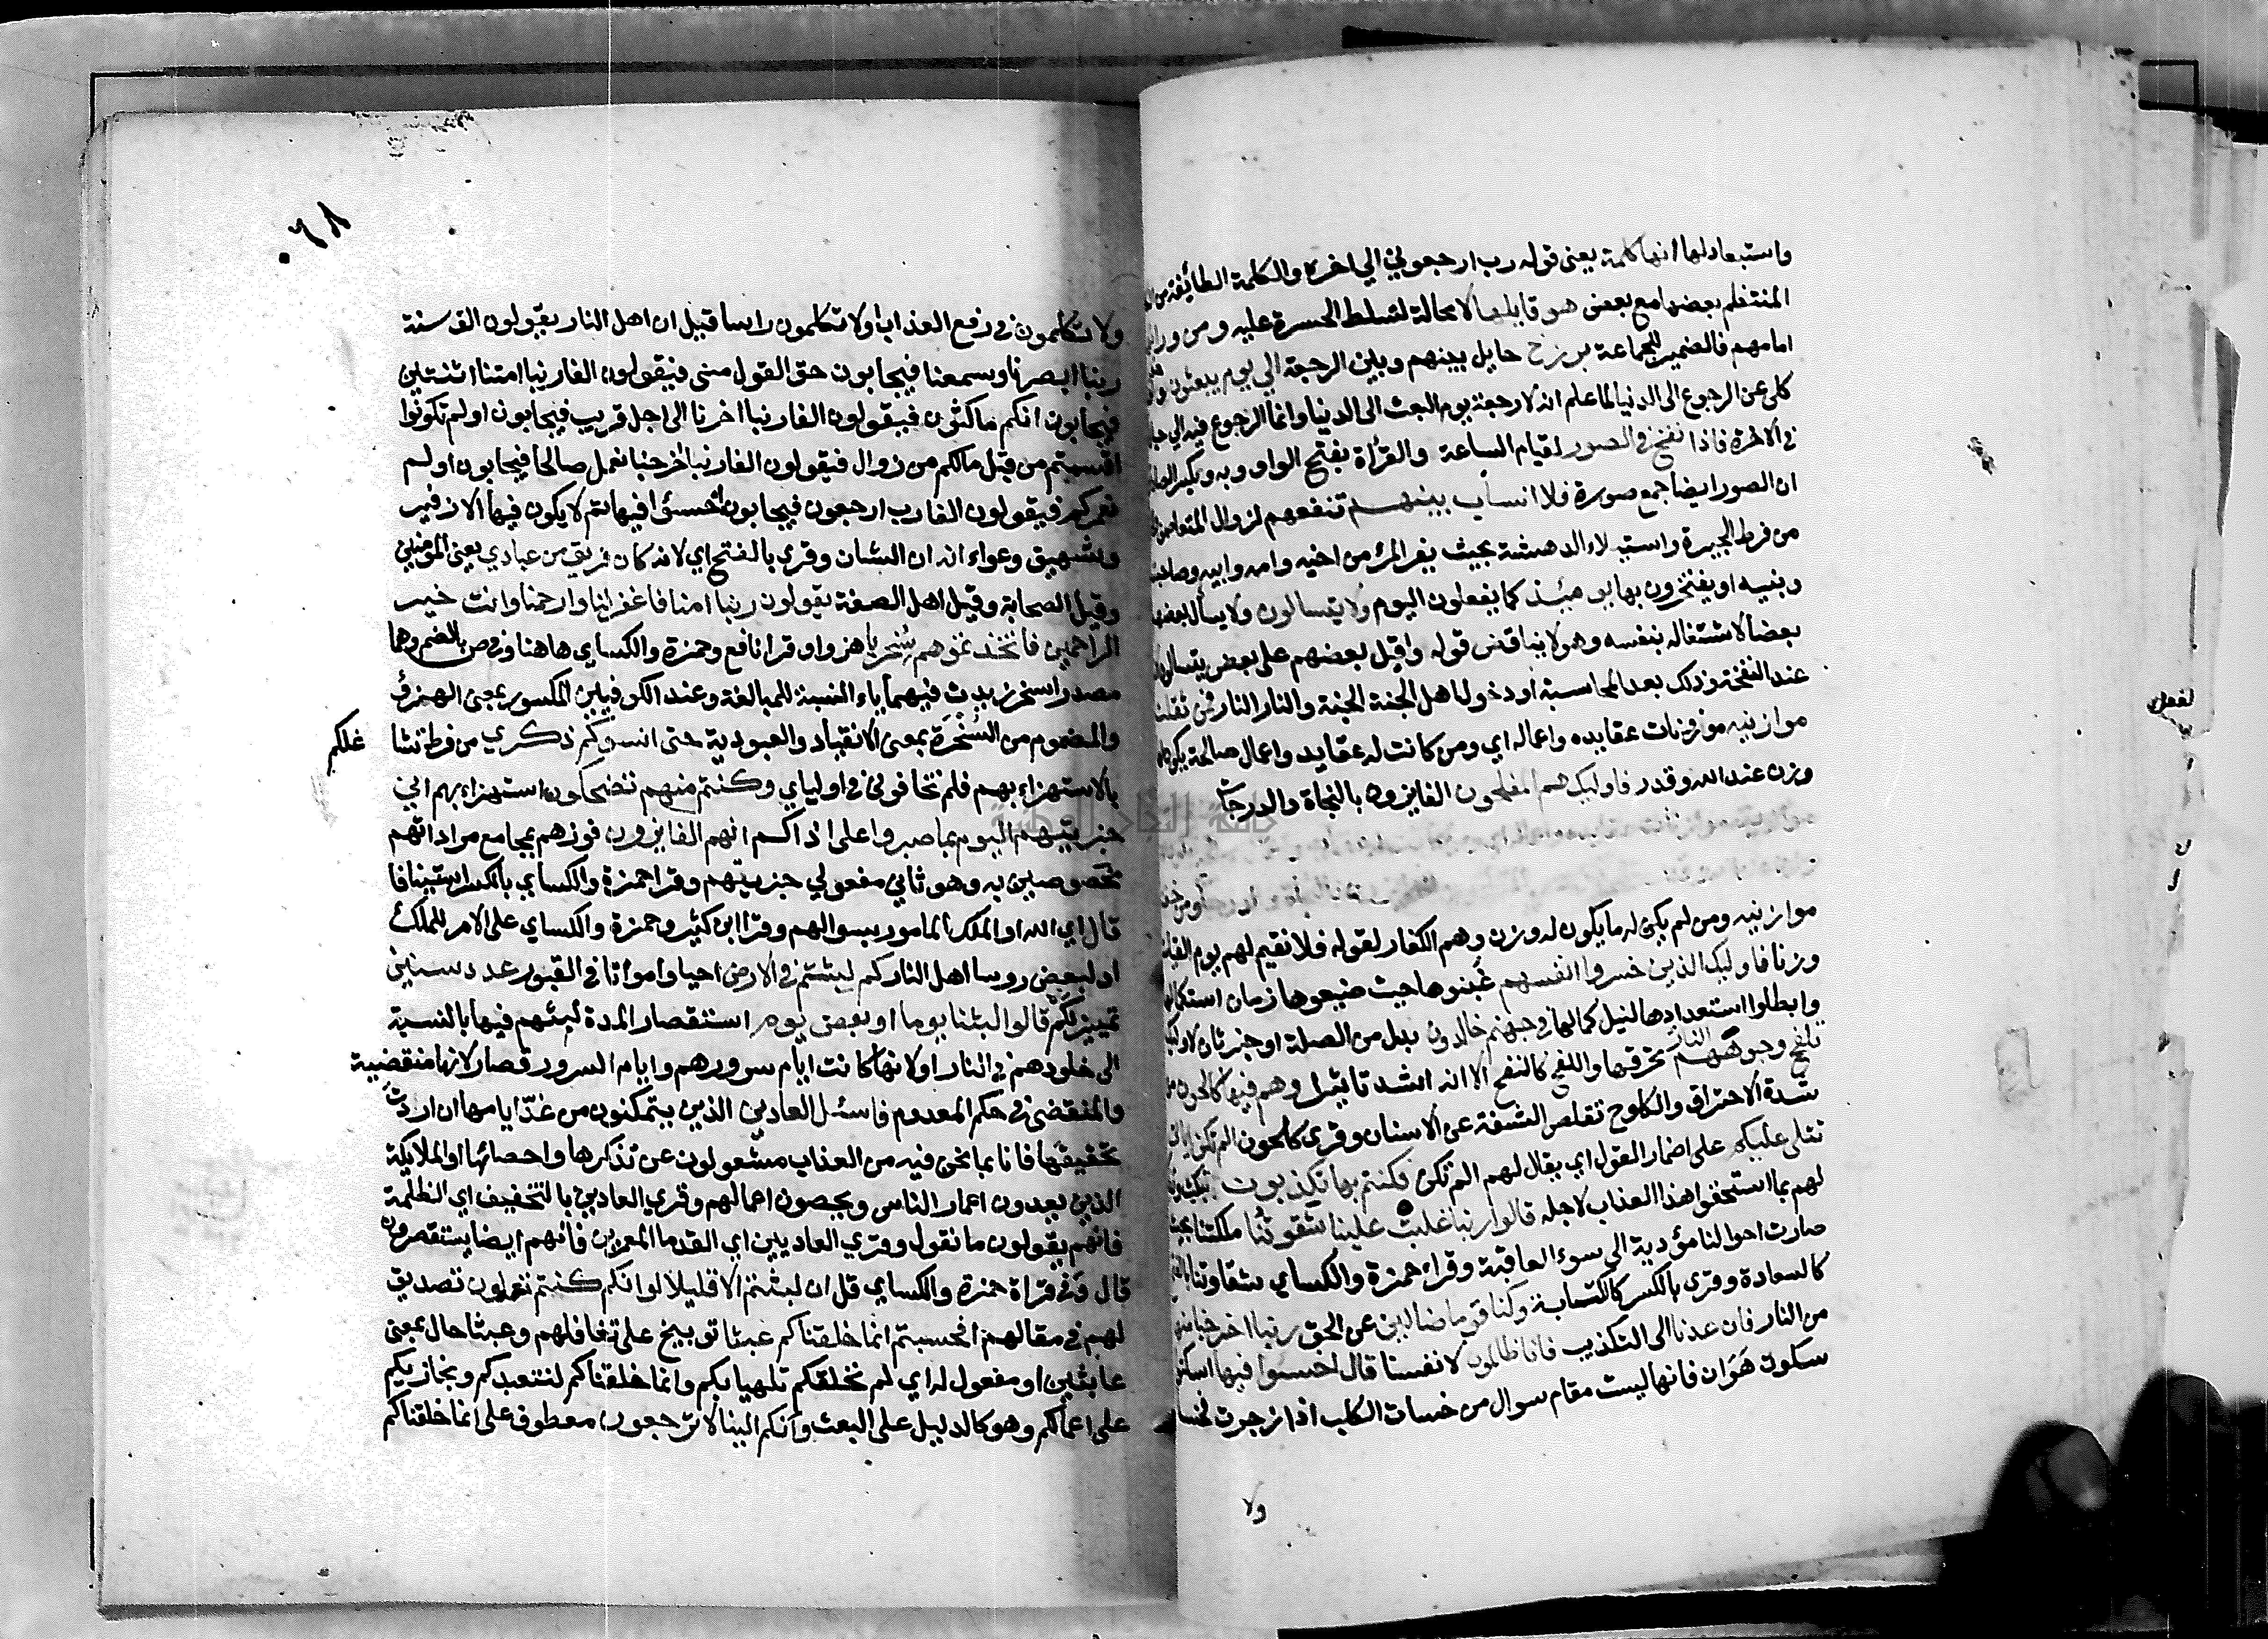 واستبعاد لها انها كلمة يعني قوله رب ارجعوني الي اخره والكلمة الطائفة من
المنتظم بعضها مع بعض هو قايلها لا محالة لتسلط الحسرة عليه ومن ورائهم
امامهم فالضمير للجماعة برزخ حايل بينهم وبين الرجعة الي يوم يبعثون
كلي عن الرجوع الى الدنيا لما علم انه لا رجعة يوم البعث الى الدنيا وانما الرجوع فيه الي
في الاخرة فاذا نفخ في الصور لقيام الساعة والقراة بفتح الواو وبه وبكسر
ان الصور ايضا جمع صورة فلا انساب بينهم تنفعهم لزوال
من فرط الحيرة واستيلاء الدهشة بحيث يفر المرء من اخيه وامه وابيه وصاحبته
وبنيه او يفتخرون بها يومئذ كما يفعلون اليوم ولا يتسالون ولا يسأل بعضهم
بعضا لاشتغاله بنفسه وهو لا يناقض قوله واقبل بعضهم على بعض يتسالون
عند النفخة وذلك بعد المحاسبة او دخول اهل الجنة الجنة والنار النار فمن ثقلت
موازينه موزونات عقايده واعماله اي ومن كانت له عقايد واعمال صالحة يكون
وزن عند الله وقدر فاوليك هم المفلحون الفايزون بالنجاة والدرجات
موازينه ومن لم يكن له ما يكون له وزن وهم الكفار لقوله فلا نقيم لهم يوم القيمة
وزنا فاوليك الذين خسروا انفسهم غبنوها حيث ضيعوها زمان استكمالها
وابطلوا استعدادها لنيل كمالها في جهنم خالدون بدل من الصلة او خبر ثان لاوليك
تلفح وجوههم النار تحرقها واللفح كالنفح الا انه اشد تاثيرا وهم فيها كالحون من
شدة الاحتراق والكلوح تقلص الشفة عن الاسنان وقري كلحون الم تكن اياتي
تتلى عليكم على اضمار القول اي يقال لهم الم تكن فكنتم بها تكذبون
لهم بما استحقوا هذا العذاب لاجله قالوا ربنا غلبت علينا شقوتنا ملكتنا بحيث
صارت احوالنا مؤدية الى سوء العاقبة وقراء حمزة والكساي شقاوتنا بالفتح
كالسعادة وقري بالكسر كالكتابة وكنا قوما ضالين عن الحق ربنا اخرجنا منها
من النار فان عدنا الى التكذيب فانا ظالمون لانفسنا قال اخسئوا فيها اسكتوا
سكوت هوان فانها ليست مقام سوال من خسات الكلب اذا زجرته فخسا
ولا
٠٦٨
ولا تكلمون في رفع العذاب او لا تكلمون راسا قيل ان اهل النار يقولون الف سنة
ربنا ابصرنا وسمعنا فيجابون حق القول مني فيقولون الفا ربنا امتنا اثنتين
فيجابون انكم ماكثون فيقولون الفا ربنا اخرنا الى اجل قريب فيجابون اولم تكونوا
اقسمتم من قبل مالكم من زوال فيقولون الفا ربنا اخرجنا نعمل صالحا فيجابون اولم
نعمركم فيقولون الفا رب ارجعون فيجابون اخسئوا فيها ثم لا يكون فيها الا زفير
وشهيق وعواء انه ان الشان وقري بالفتح اي لانه كان فريق من عبادي يعني المومنين
وقيل الصحابة وقيل اهل الصفة يقولون ربنا امنا فاغفر لنا وارحمنا وانت خير
الراحمين فاتخذتموهم سخريا هزوا وقرا نافع وحمزة والكساي هاهنا وفي ص بالضم وهما
مصدرا سخر زيدت فيهما ياء النسبة للمبالغة وعند الكوفيين المكسور بمعنى الهزؤ
والمضموم من السخرة بمعنى الانقياد والعبودية حتى انسوكم ذكري من فرط تشا غلكم
بالاستهزاء بهم فلم تخافوني في اوليائي وكنتم منهم تضحكون استهزاء بهم اني
جزيتهم اليوم بما صبروا على اذاكم انهم الفايزون فوزهم بمجامع مراداتهم
مخصوصين به وهو ثاني مفعولي جزيتهم وقرا حمزة والكساي بالكسر استينافا
قال اي الله او الملك المامور بسوالهم وقرا ابن كثير وحمزة والكساي على الامر للملك
او لبعض روسا اهل النار كم لبثتم في الارض احياء وامواتا في القبور عدد سنين
تمييز لكم قالوا لبثنا يوما او بعض يوم استقصارا لمدة لبثهم فيها بالنسبة
الى خلودهم في النار او لانها كانت ايام سرورهم وايام السرور قصار لانها منقضية
والمنقضي في حكم المعدوم فاسئل العادين الذين يتمكنون من عد ايامها ان اردت
تحقيقها فانا بما نحن فيه من العذاب مشغولون عن تذكرها واحصائها او الملايكة
الذين يعدون اعمار الناس ويحصون اعمالهم وقري العادين بالتخفيف اي الظلمة
فانهم يقولون ما نقول وقري العاديين اي القدما المعمرين فانهم ايضا يستقصرون
قال وفي قراة حمزة والكساي قل ان لبثتم الا قليلا لو انكم كنتم تعلمون تصديق
لهم في مقالهم افحسبتم انما خلقناكم عبثا توبيخ على تغافلهم وعبثا حال بمعنى
عابثين او مفعول له اي لم نخلقكم تلهيا بكم وانما خلقناكم لنتعبدكم ونجازيكم
على اعمالكم وهو كالدليل على البعث وانكم الينا لا ترجعون معطوف على انما خلقناكم